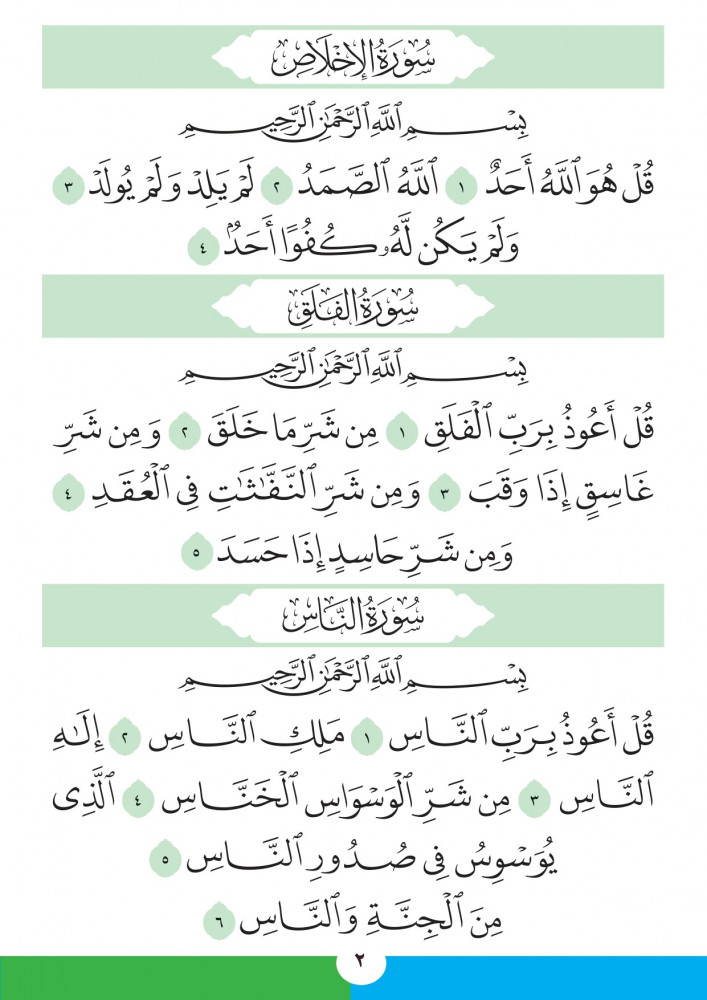 سُورَةُ الإِخْلَاصِ
بِسْمِ ٱللَّهِ ٱلرَّحْمَٰنِ ٱلرَّحِيمِ
قُلْ هُوَ ٱللَّهُ أَحَدٌ ١ ٱللَّهُ ٱلصَّمَدُ ٢ لَمْ يَلِدْ وَلَمْ يُولَدْ ٣
وَلَمْ يَكُن لَّهُۥ كُفُوًا أَحَدٌۢ ٤
سُورَةُ الفَلَقِ
بِسْمِ ٱللَّهِ ٱلرَّحْمَٰنِ ٱلرَّحِيمِ
قُلْ أَعُوذُ بِرَبِّ ٱلْفَلَقِ ١ مِن شَرِّ مَا خَلَقَ ٢ وَمِن شَرِّ
غَاسِقٍ إِذَا وَقَبَ ٣ وَمِن شَرِّ ٱلنَّفَّٰثَٰتِ فِى ٱلْعُقَدِ ٤
وَمِن شَرِّ حَاسِدٍ إِذَا حَسَدَ ٥
سُورَةُ النَّاسِ
بِسْمِ ٱللَّهِ ٱلرَّحْمَٰنِ ٱلرَّحِيمِ
قُلْ أَعُوذُ بِرَبِّ ٱلنَّاسِ ١ مَلِكِ ٱلنَّاسِ ٢ إِلَٰهِ
ٱلنَّاسِ ٣ مِن شَرِّ ٱلْوَسْوَاسِ ٱلْخَنَّاسِ ٤ ٱلَّذِى
يُوَسْوِسُ فِى صُدُورِ ٱلنَّاسِ ٥
مِنَ ٱلْجِنَّةِ وَٱلنَّاسِ ٦
٢